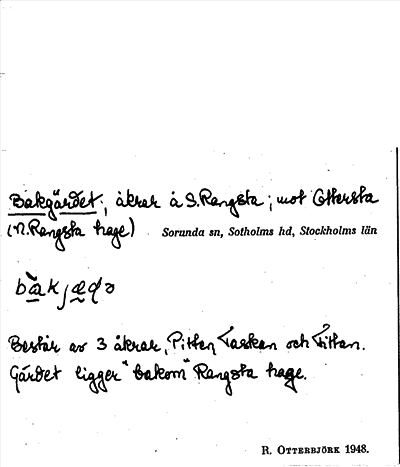 Bakgärdet, åkrar å S. Rangsta; mot Ottersta
(N. Rangsta hage) Sorunda sn, Sotholms hd, Stockholms län
Består av 3 åkrar, Pitten, Taskan och Fittan.
Gärdet ligger "bakom" Rangsta hage.
R. OTTERBJÖRK 1948.